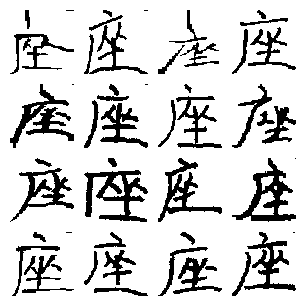 座座座座
座座座座
座座座座
座座座座